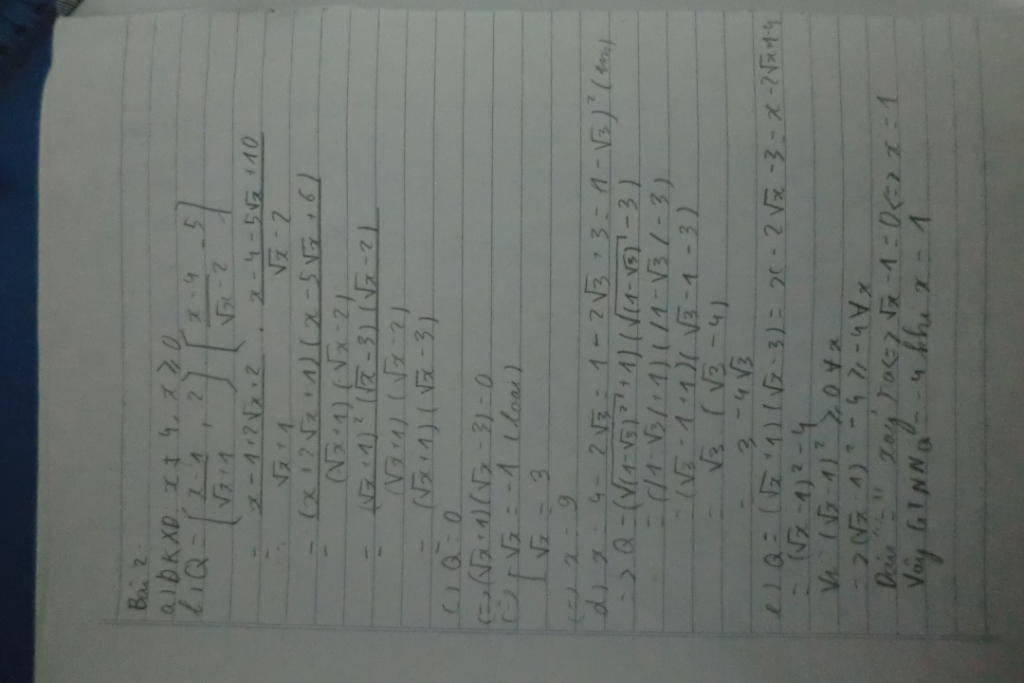 Bài 2
a) ĐKXĐ: x ≠ 4, x ≥ 0
b) Q = [(x-1)/(√x+1) + 2/1] [(x-4)/(√x-2) - 5/1]
= (x-1+2√x+2)/(√x+1) . (x-4-5√x+10)/(√x-2)
= (x+2√x+1)(x-5√x+6)/(√x+1)(√x-2)
= (√x+1)²(√x-3)(√x-2)/(√x+1)(√x-2)
= (√x+1)(√x-3)
c) Q = 0
(=) (√x+1)(√x-3) = 0
(=) [√x = -1 (loại)
[√x = 3
(=) x = 9
d) x = 4 - 2√3 = 1 - 2√3 + 3 = (1-√3)² (tm)
=> Q = (√(1-√3)² + 1)(√(1-√3)² - 3)
= (|1-√3| + 1)(|1-√3| - 3)
= (√3-1+1)(√3-1-3)
= √3 (√3-4)
= 3 - 4√3
e) Q = (√x+1)(√x-3) = x - 2√x - 3 = x - 2√x + 1 - 4
= (√x-1)² - 4
Vì (√x-1)² ≥ 0 ∀x
=> (√x-1)² - 4 ≥ -4 ∀x
Dấu "=" xảy ra <=> √x - 1 = 0 <=> x = 1
Vậy GTNN Q = -4 khi x = 1